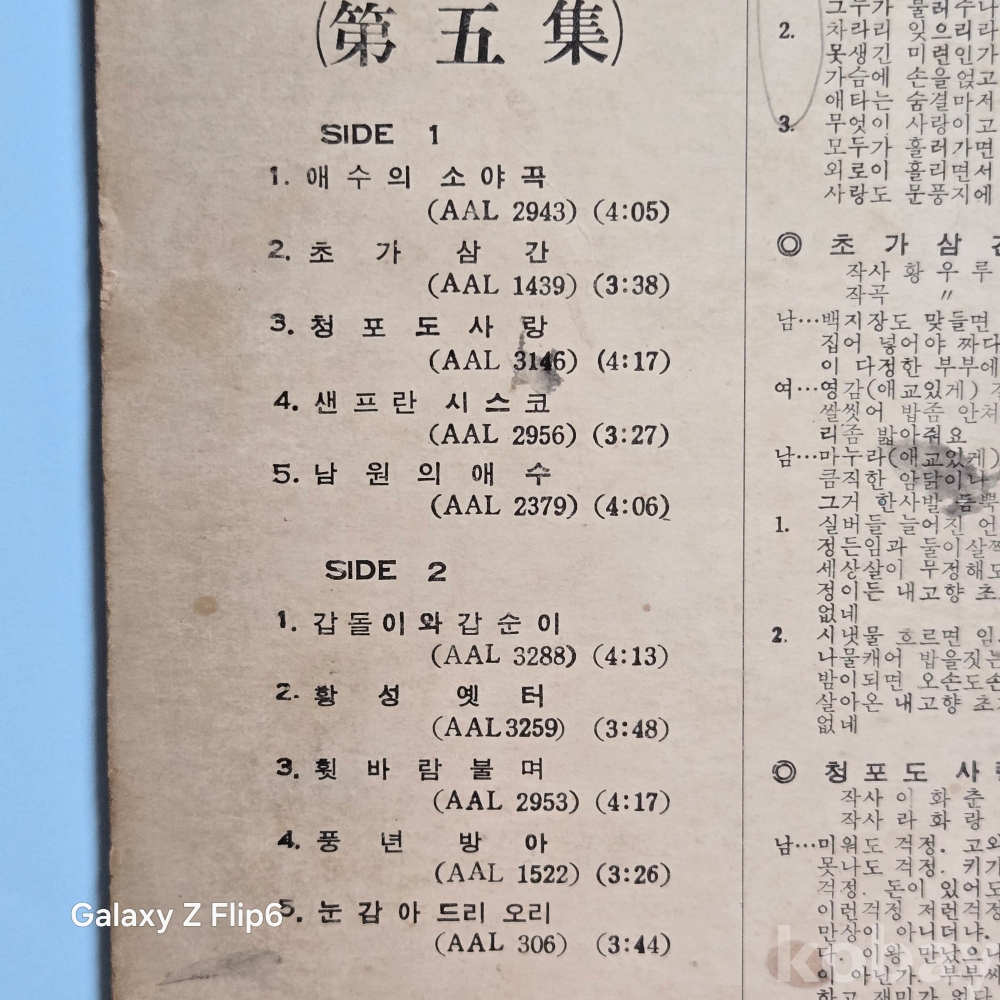 (第五集)
SIDE 1
1. 애수의 소야곡
(AAL 2943) (4:05)
2. 초가삼간
(AAL 1439) (3:38)
3. 청포도사랑
(AAL 3146) (4:17)
4. 샌프란시스코
(AAL 2956) (3:27)
5. 남원의애수
(AAL 2379) (4:06)
SIDE 2
1. 갑돌이와갑순이
(AAL 3288) (4:13)
2. 황성옛터
(AAL3259) (3:48)
3. 휫바람불며
(AAL 2953) (4:17)
4. 풍년방아
(AAL 1522) (3:26)
5. 눈감아 드리오리
(AAL 306) (3:44)
그누가 물러수나
2. 차라리 잊으리라
못생긴 미련인가
가슴에 손을얹고
애타는 숨결마저
3. 무엇이 사랑이고
모두가 흘러가면
외로이 흘리면서
사랑도 문풍지에
◎ 초가삼간
작사 황우루
작곡 〃
남…백지장도 맞들면
집어 넣어야 짜다
이 다정한 부부에
여…영감(애교있게)
쌀씻어 밥좀 안쳐
리좀 밟아줘요
남…마누라(애교있게)
큼직한 암닭이나
그거 한사발 듬뿍
1. 실버들 늘어진 언
정든임과 둘이살짝
세상살이 무정해도
정이든 내고향 초
없네
2. 시냇물 흐르면 임
나물캐어 밥을짓는
밤이되면 오손도손
살아온 내고향 초
없네
◎ 청포도 사랑
작사 이화춘
작사 라화랑
남…미워도 걱정. 고와
못나도 걱정. 키가
걱정. 돈이 있어도
이런걱정 저런걱정
만상이 아니더냐.
다. 이왕 만났으니
이 아닌가. 부부싸
하고 재미가 없다
Galaxy Z Flip6